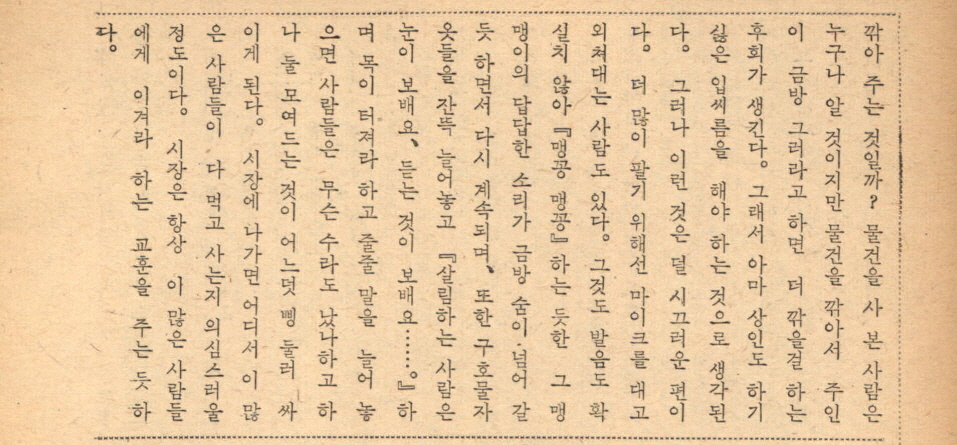 깎아 주는 것일까? 물건을 사 본 사람은
누구나 알 것이지만 물건을 깎아서 주인
이 금방 그러라고 하면 더 깎을걸 하는
후회가 생긴다. 그래서 아마 상인도 하기
싫은 입씨름을 해야 하는 것으로 생각된
다. 그러나 이런 것은 덜 시끄러운 편이
다. 더 많이 팔기 위해선 마이크를 대고
외쳐대는 사람도 있다. 그것도 발음도 확
실치 않아 『맹꽁 맹꽁』하는 듯한 그 맹
맹이의 답답한 소리가 금방 숨이 넘어 갈
듯 하면서 다시 계속되며, 또한 구호물자
옷들을 잔뜩 늘어놓고 『살림하는 사람은
눈이 보배요, 듣는 것이 보배요……。』하
며 목이 터져라 하고 줄줄 말을 늘어 놓
으면 사람들은 무슨 수라도 났나하고 하
나 둘 모여드는 것이 어느덧 삥 둘러 싸
이게 된다. 시장에 나가면 어디서 이 많
은 사람들이 다 먹고 사는지 의심스러울
정도이다. 시장은 항상 이 많은 사람들
에게 이겨라 하는 교훈을 주는 듯 하
다.